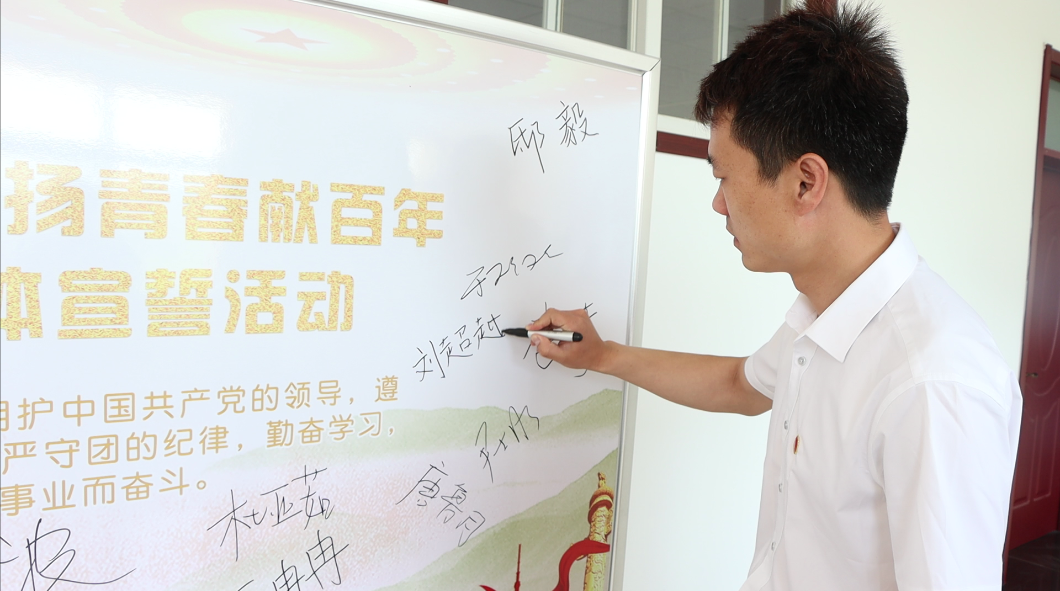 扬青春献百年
体宣誓活动
拥护中国共产党的领导，遵
严守团的纪律，勤奋学习，
事业而奋斗。
邸毅
刘超越
杜亚茹
冉冉
波